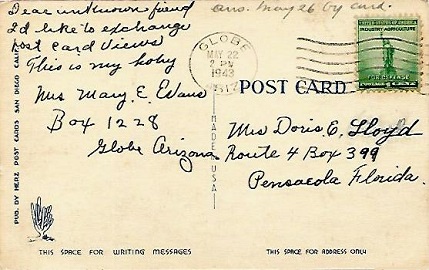 Dear unknown friend
I'd like to exchange
post card views
This is my hoby
Mrs Mary E. Evans
Box 1228
Globe Arizona
ans. May 26 by card.
GLOBE
MAY 22
2 PM
1943
ARIZ
UNITED STATES OF AMERICA
INDUSTRY AGRICULTURE
FOR DEFENSE
POSTAGE 1 CENT
POST CARD
Mrs Doris E. Lloyd
Route 4 Box 399
Pensacola Florida.
PUB. BY HERZ POST CARDS SAN DIEGO CALIF.
MADE IN U.S.A.
THIS SPACE FOR WRITING MESSAGES
THIS SPACE FOR ADDRESS ONLY